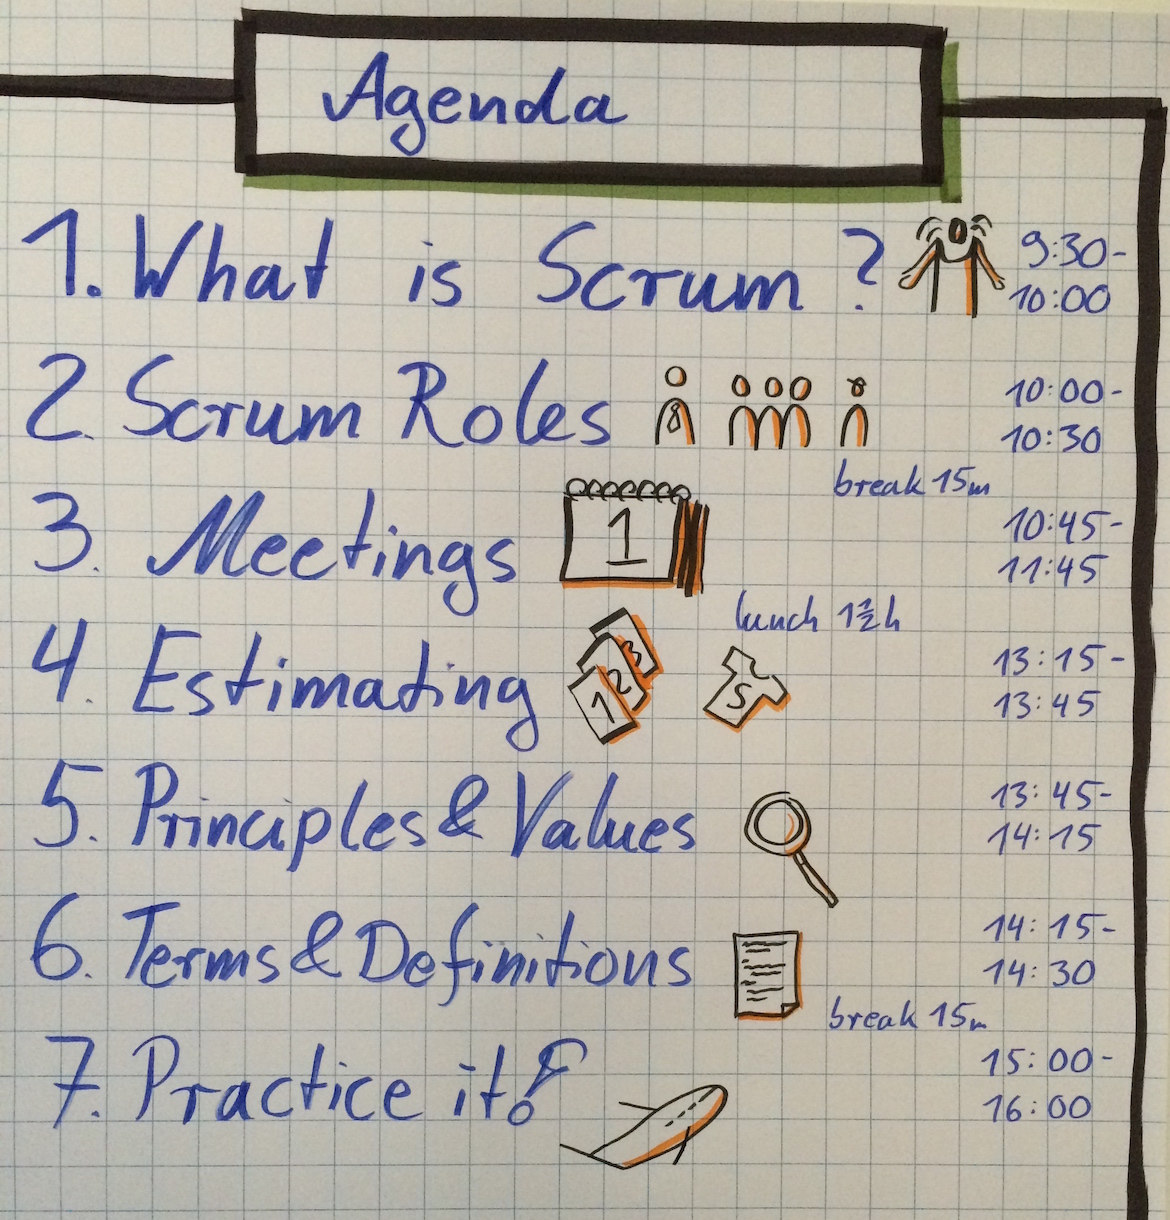 Agenda
1. What is Scrum? 9:30-
10:00
2. Scrum Roles 10:00-
10:30
break 15m
3. Meetings 1 10:45-
11:45
lunch 1½h
4. Estimating 1 2 3 S 13:15-
13:45
5. Principles & Values 13:45-
14:15
6. Terms & Definitions 14:15-
14:30
break 15m
7. Practice it! 15:00-
16:00